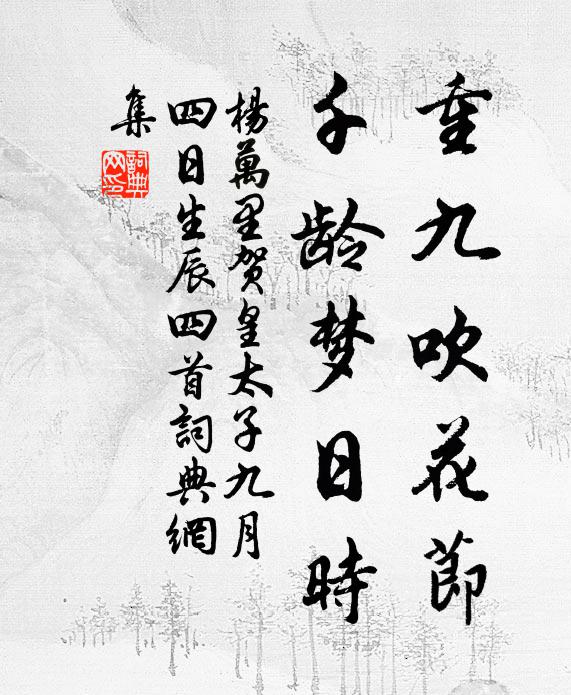 重九吹花節
千龄梦日時
楊萬里贺皇太子九月
四日生辰四首詞典網
集
詞典
网印